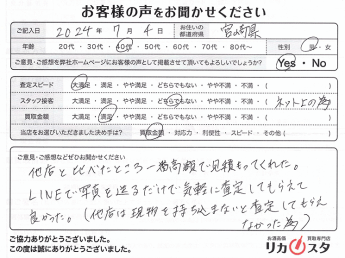 お客様の声をお聞かせください
ご記入日 2024年 7月 4日 お住いの都道府県 宮崎県
年齢 20代・30代・40代・50代・60代・70代・80代〜 性別 男・女
ご意見・ご感想を弊社ホームページにお客様の声として掲載させて頂いてもよろしいでしょうか? Yes・No
査定スピード 大満足・満足・やや満足・どちらでもない・やや不満・不満・(
スタッフ接客 大満足・満足・やや満足・どちらでもない・やや不満・不満・( ネット上の為
買取金額 大満足・満足・やや満足・どちらでもない・やや不満・不満・(
当店をお選びいただきました決め手は? 買取金額・対応力・利便性・スピード・その他(
ご意見・ご感想などぜひお聞かせください
他店と比べたところ一番高額で見積もってくれた。
LINEで写真を送るだけで気軽に査定してもらえて
良かった。(他店は現物を持ち込まないと査定してもらえ
なかった為)
ご協力ありがとうございました。
この度は誠にありがとうございました。
お酒買取専門店
リカスタ